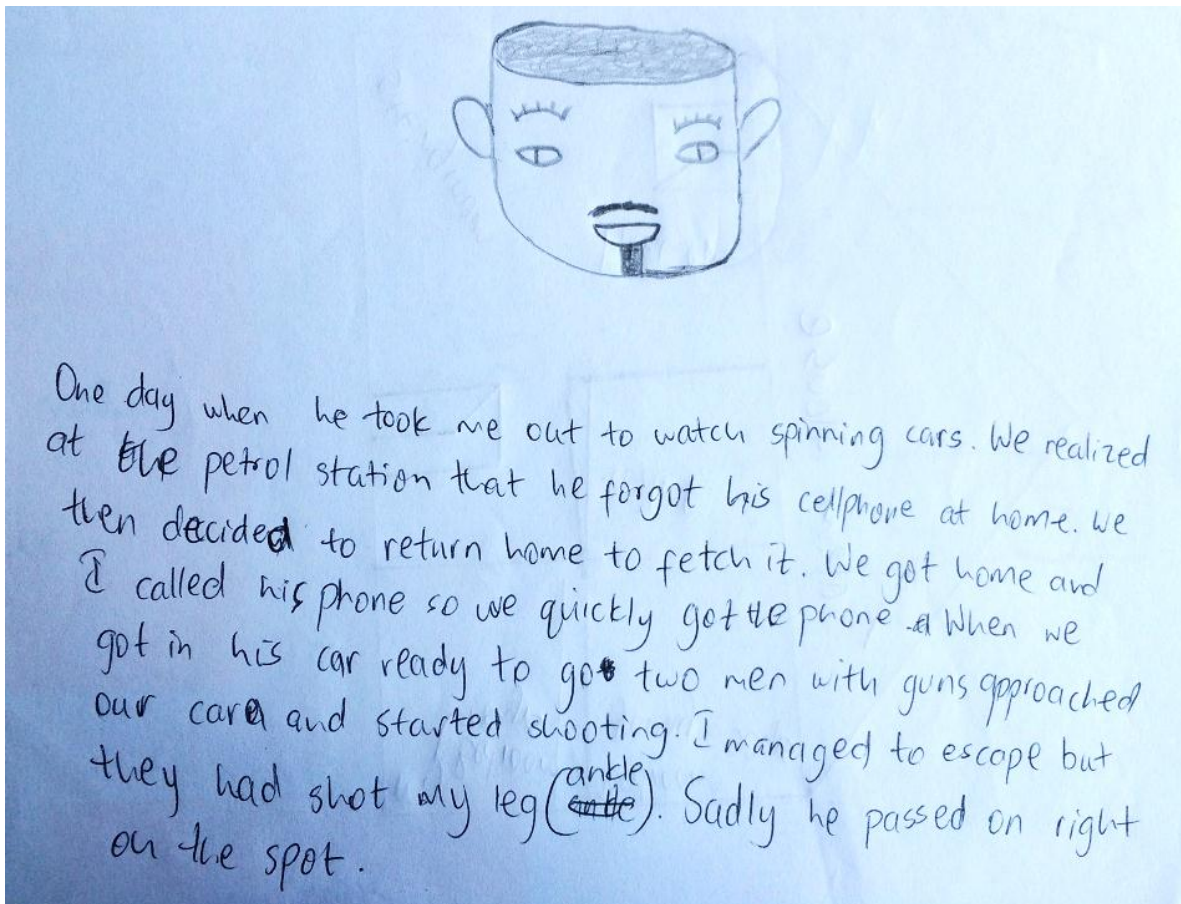 One day when he took me out to watch spinning cars. We realized
at the petrol station that he forgot his cellphone at home. We
then decided to return home to fetch it. We got home and
I called his phone so we quickly got the phone. When we
got in his car ready to go two men with guns approached
our car and started shooting. I managed to escape but
they had shot my leg (ankle). Sadly he passed on right
on the spot.